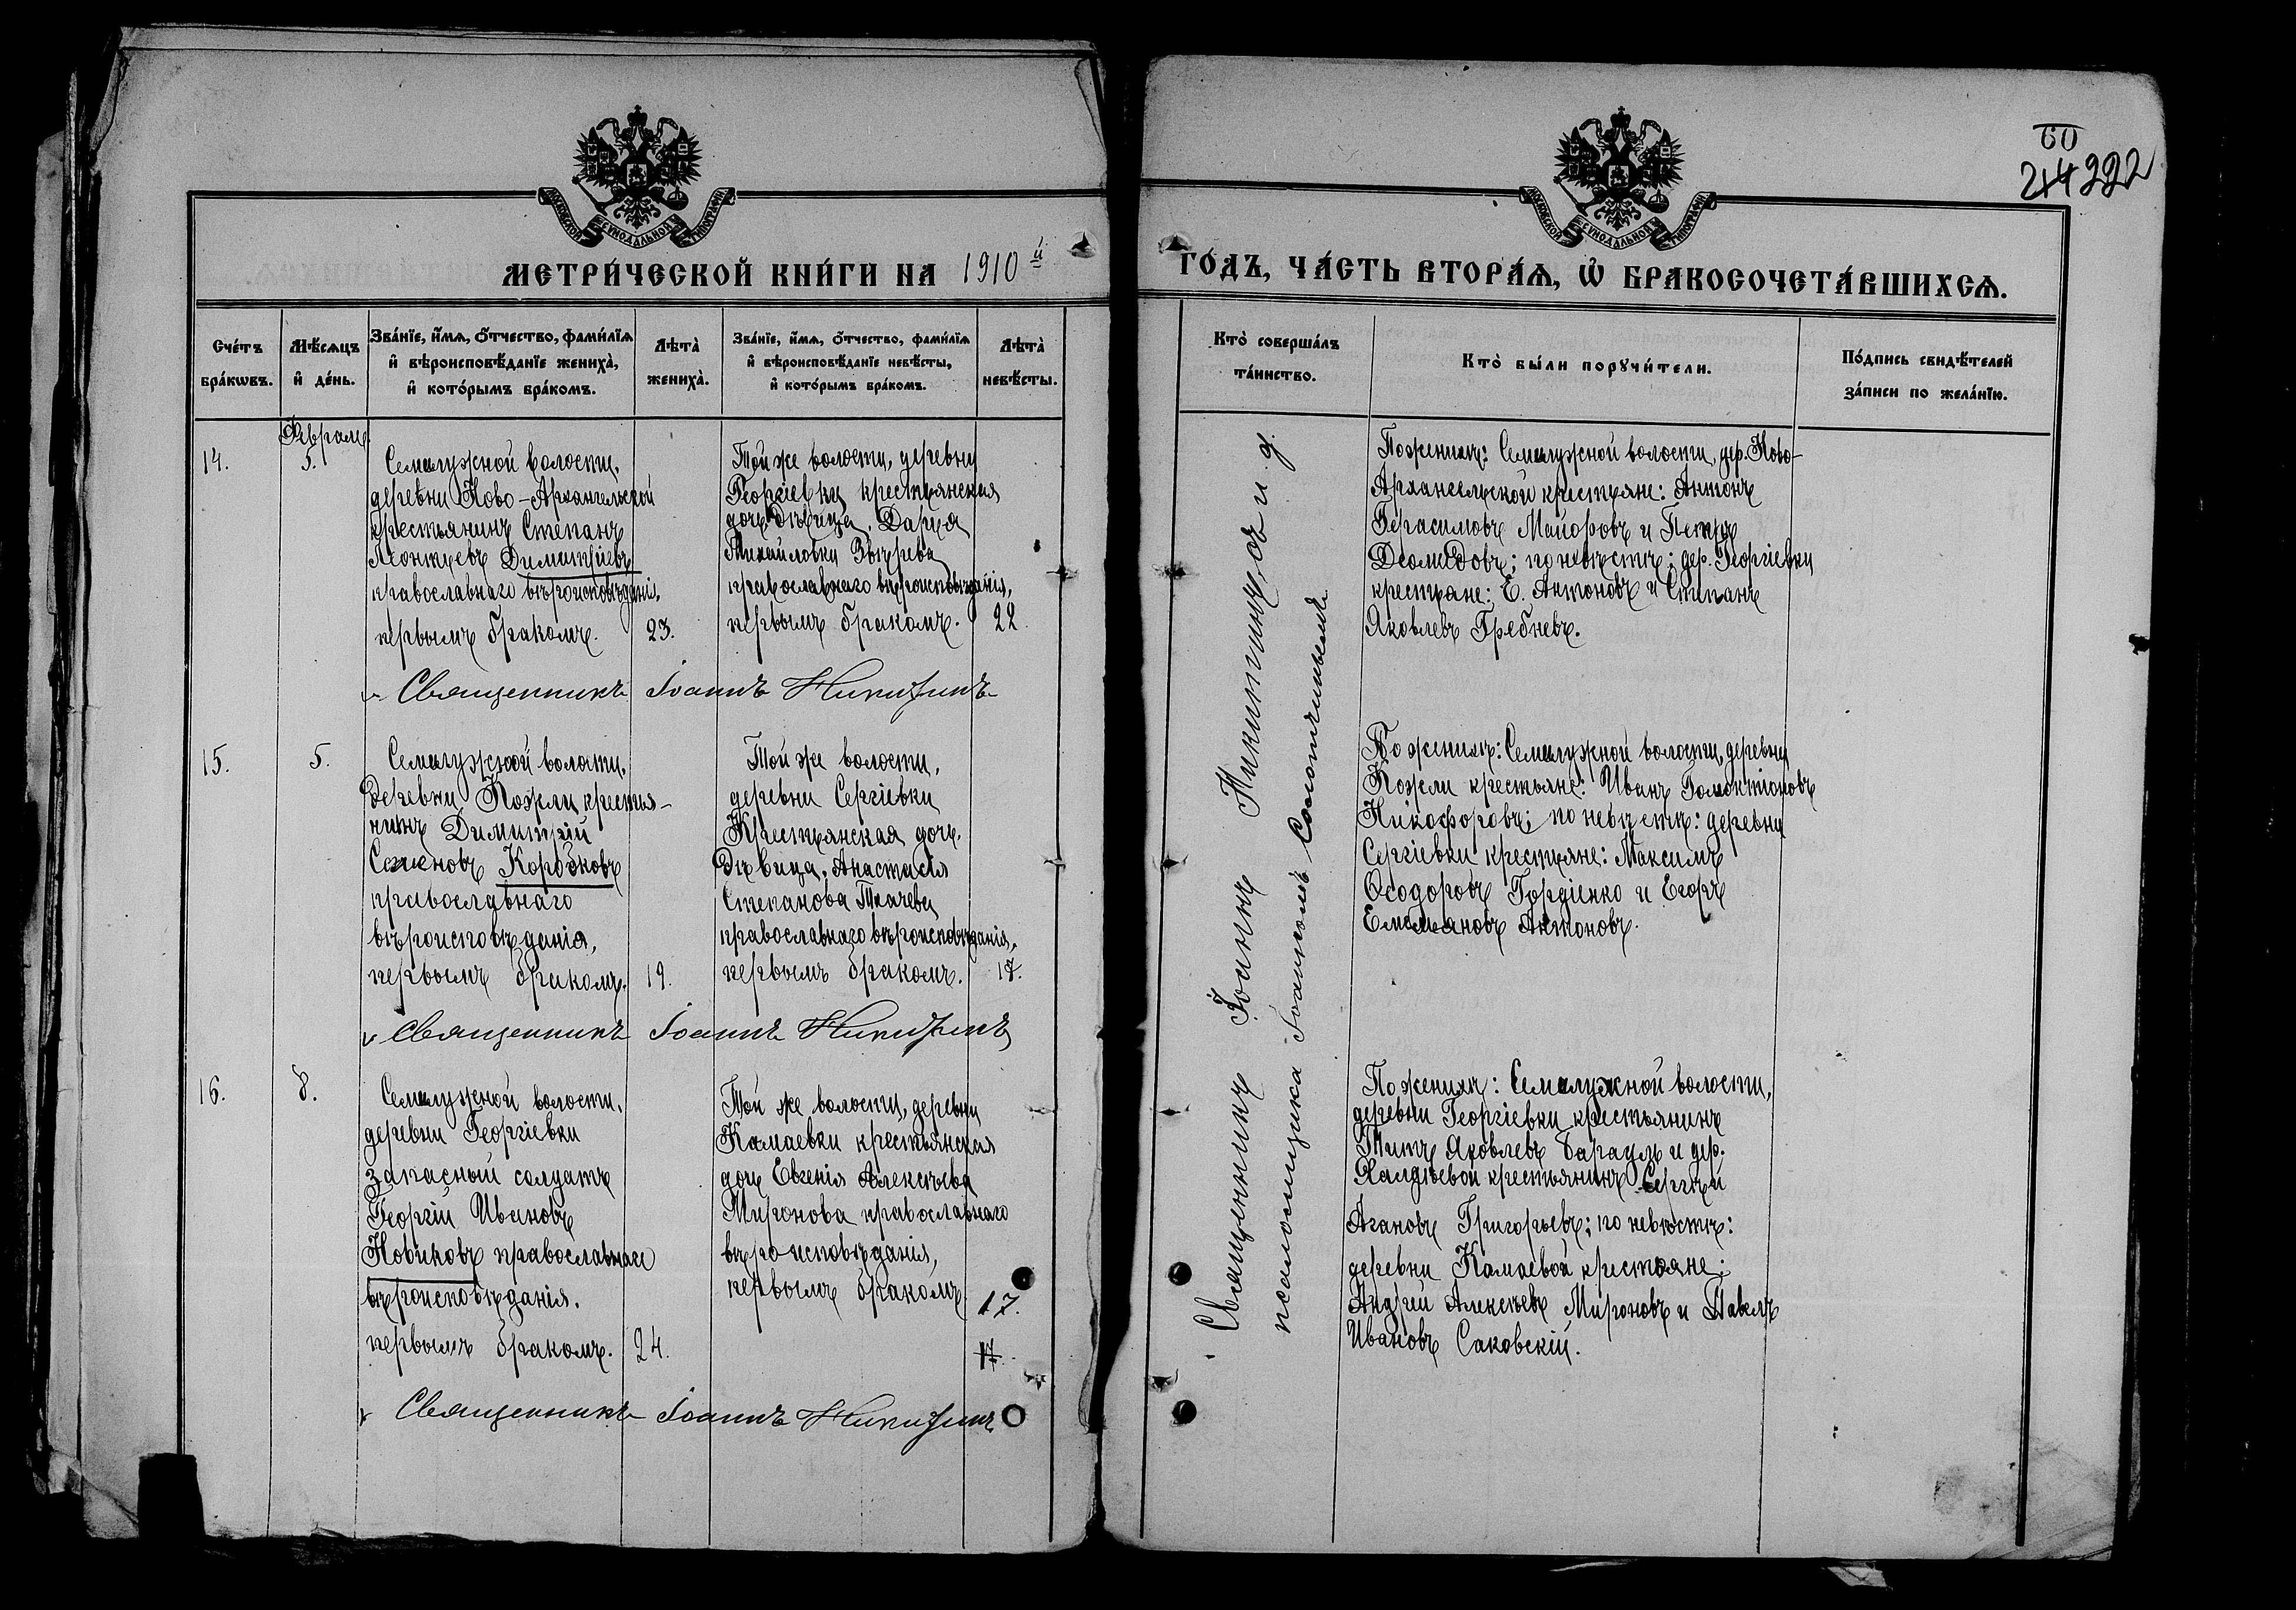 МОСКОВСКОЙ СѴНОДАЛЬНОЙ ТИПОГРАФІИ
МЕТРИ́ЧЕСКОЙ КНИ́ГИ НА 1910й
Сче́тъ бра́кѡвъ.
Мѣ́сѧцъ и҆ де́нь.
Зва́нїе, и҆́мѧ, ѻ҆́тчество, фами́лїѧ
и҆ вѣроисповѣ́данїе жениха̀,
и҆ кото́рымъ бра́комъ.
Лѣта̀ жениха̀.
Зва́нїе, и҆́мѧ, ѻ҆́тчество, фами́лїѧ
и҆ вѣроисповѣ́данїе невѣ́сты,
и҆ кото́рымъ бра́комъ.
Лѣта̀ невѣ́сты.
Февраль
14.
5.
Семилужной волости,
деревни Ново-Архангельской
крестьянинъ Степанъ
Леонтьевъ Димитріевъ
православнаго вѣроисповѣданія,
первымъ бракомъ.
23.
Той же волости, деревни
Георгіевки крестьянская
дочь дѣвица, Дарья
Михайловна Звѣрева
православнаго вѣроисповѣданія,
первымъ бракомъ.
22.
Священникъ Іоаннъ Никитинъ
15.
5.
Семилужной волости,
деревни Кожли крестья-
нинъ Димитрій
Семеновъ Коробковъ
православнаго
вѣроисповѣданія,
первымъ бракомъ.
19.
Той же волости,
деревни Сергіевки
Крестьянская дочь
Дѣвица, Анастасія
Степанова Ткачева
православнаго вѣроисповѣданія,
первымъ бракомъ.
17.
Священникъ Іоаннъ Никитинъ
16.
8.
Семилужной волости,
деревни Георгіевки
запасный солдатъ
Георгій Ивановъ
Новиковъ православнаго
вѣроисповѣданія,
первымъ бракомъ.
24.
Той же волости, деревни
Камаевки крестьянская
дочь Евгенія Алексѣева
Миронова православнаго
вѣроисповѣданія,
первымъ бракомъ
17.
17.
Священникъ Іоаннъ Никитинъ
60
222
МОСКОВСКОЙ СѴНОДАЛЬНОЙ ТИПОГРАФІИ
ГО́ДЪ, ЧА́СТЬ ВТОРА́Ѧ, Ѡ҆ БРАКОСОЧЕТА́ВШИХСѦ.
Кто̀ соверша́лъ
та́инство.
Кто̀ бы́ли порꙋчи́тели.
По́дпись свидѣ́телей
за́писи по жела́нїю.
Священникъ Іоаннъ Никитинъ, съ и. д.
псаломщика Іоанномъ
По женихѣ: Семилужной волости, дер. Ново-
Архангельской крестьяне: Антонъ
Герасимовъ Майоровъ и Петръ
Деомидовъ; по невѣстѣ: дер. Георгіевки
крестьяне: Е. Антоновъ и Степанъ
Яковлевъ Гребневъ.
По женихѣ: Семилужной волости, деревни
Кожли крестьяне: Иванъ
Никифоровъ; по невѣстѣ: деревни
Сергіевки крестьяне: Максимъ
Ѳеодоровъ Гордіенко и Егоръ
Емельяновъ Антоновъ.
По женихѣ: Семилужной волости,
деревни Георгіевки крестьянинъ
Титъ Яковлевъ и дер.
Халдѣевой крестьянинъ Сергѣй
Агановъ Григорьевъ; по невѣстѣ:
деревни Камаевой крестьяне:
Андрей Алексѣевъ Мироновъ и Павелъ
Ивановъ Саковскій.